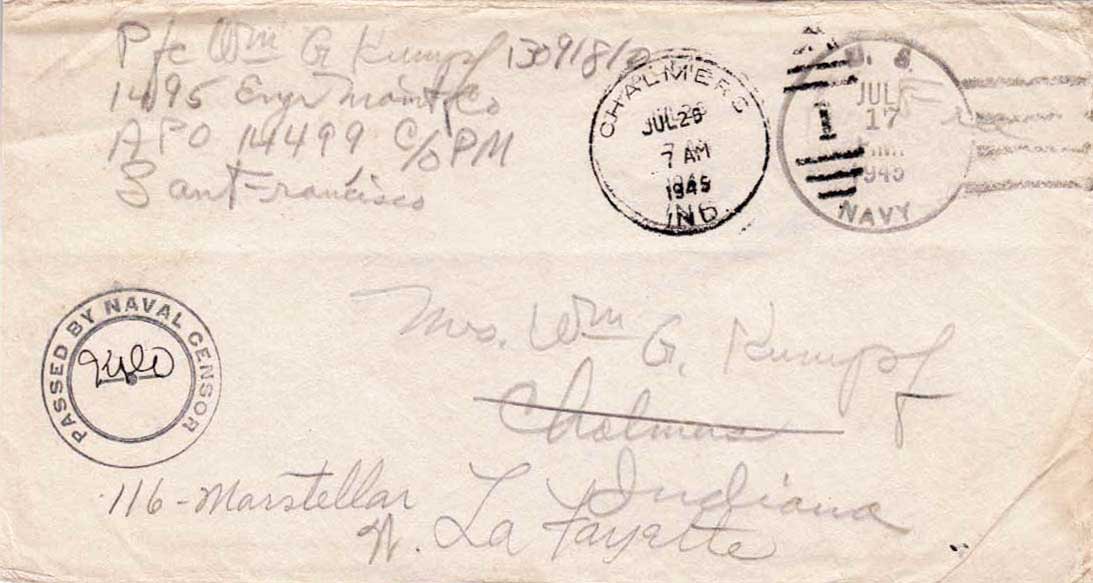 Pfc Wm G Kumpf
1495 Engr Maint Co
APO 14499 c/o PM
San Francisco
CHALMERS
JUL 26
7 AM
1945
IND
U. S.
JUL
17
1945
NAVY
1
PASSED BY NAVAL CENSOR
Mrs. Wm G. Kumpf
Chalmers
Indiana
116 - Marstellar
W. La Fayette